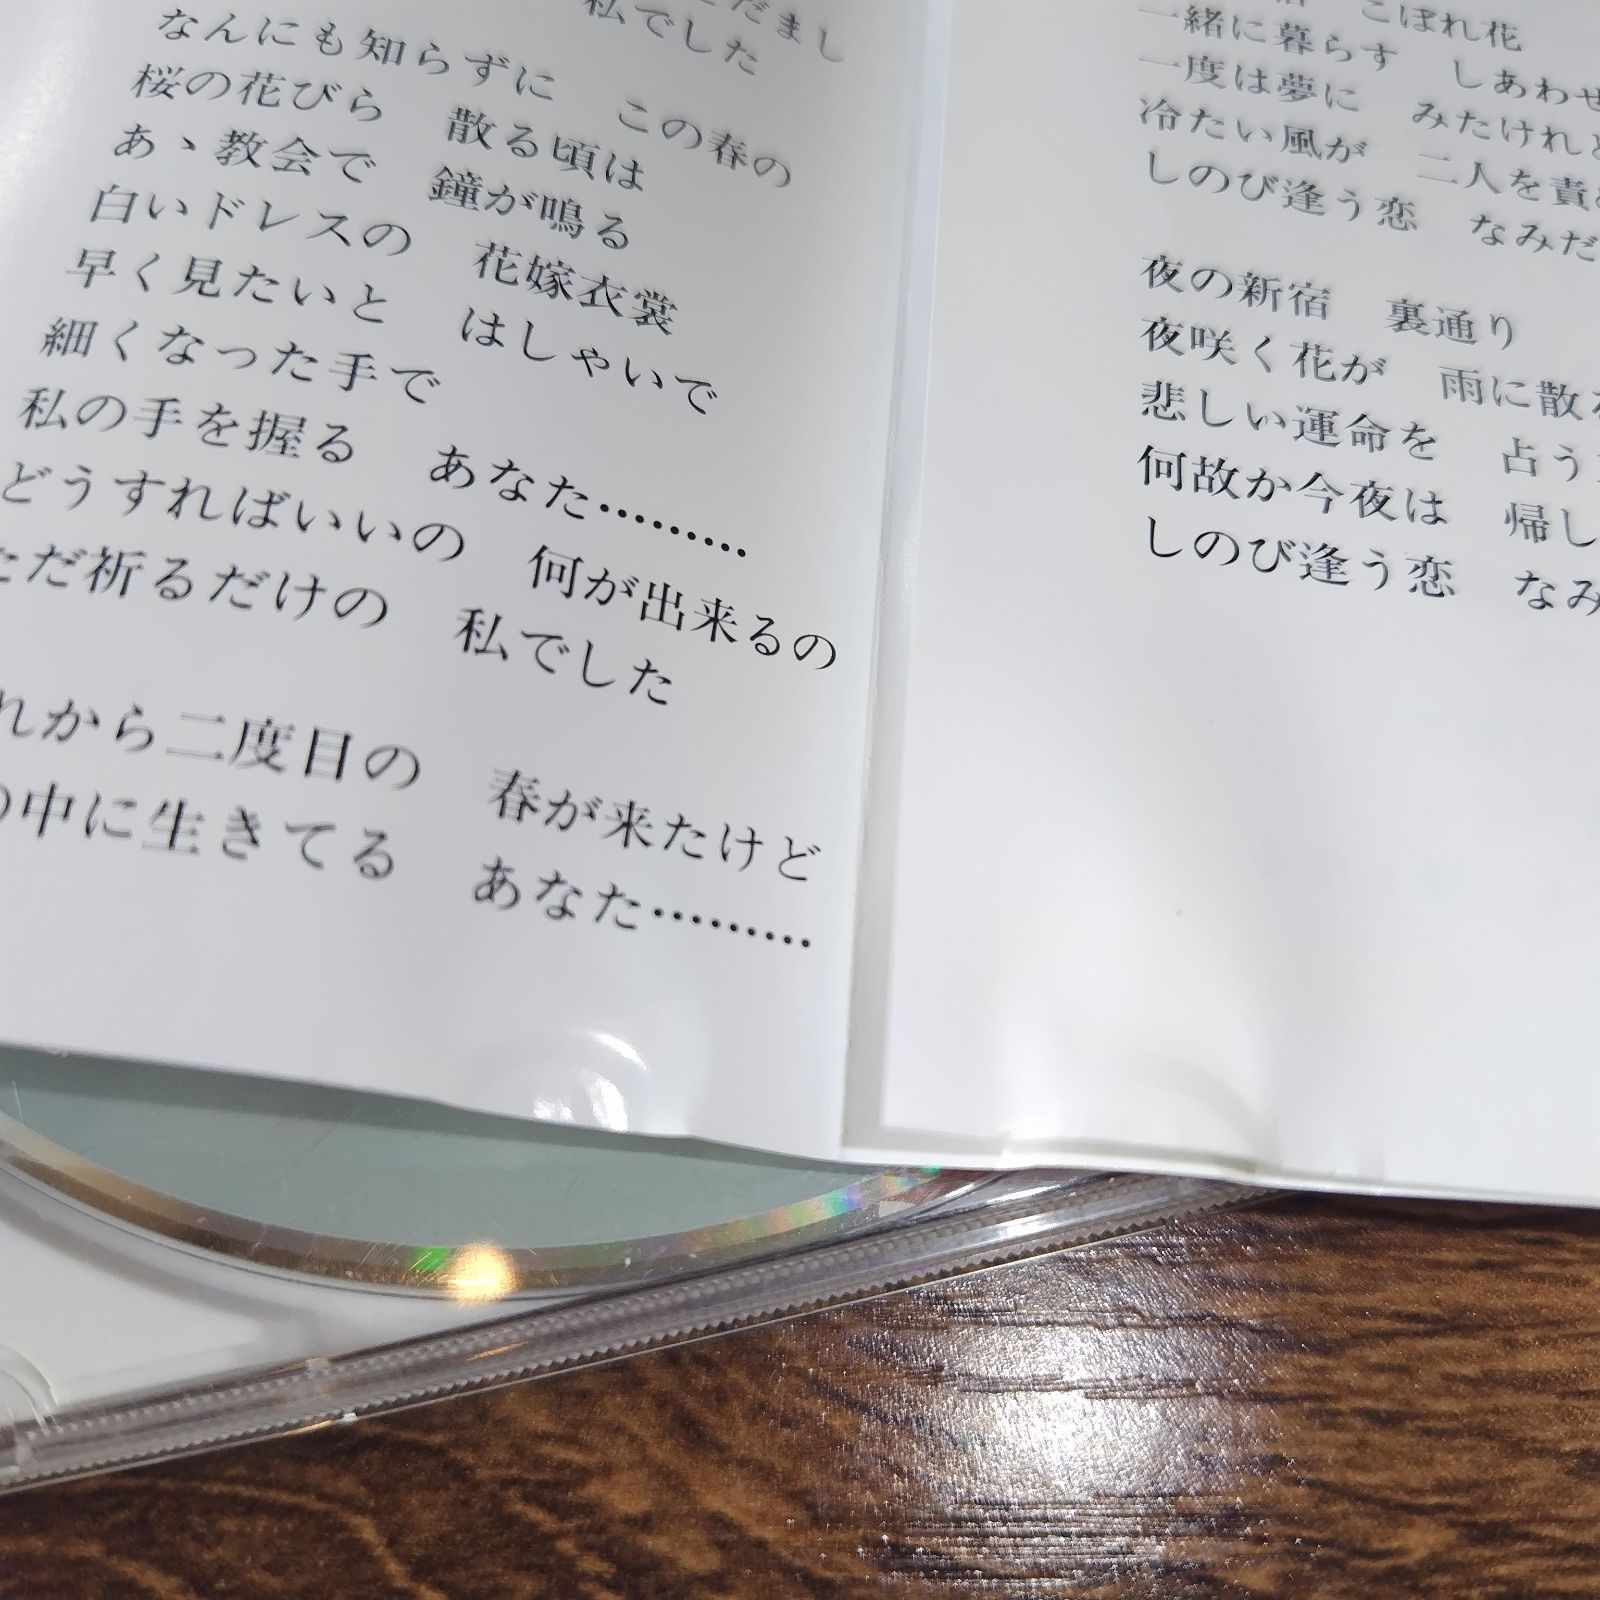 だまし
私でした
なんにも知らずに　この春の
桜の花びら　散る頃は
あゝ教会で　鐘が鳴る
白いドレスの　花嫁衣裳
早く見たいと　はしゃいで
細くなった手で
私の手を握る　あなた………
どうすればいいの　何が出来るの
ただ祈るだけの　私でした
れから二度目の　春が来たけど
の中に生きてる　あなた………
こぼれ花
一緒に暮らす　しあわせ
一度は夢に　みたけれど
冷たい風が　二人を責め
しのび逢う恋　なみだ
夜の新宿　裏通り
夜咲く花が　雨に散る
悲しい運命を　占う
何故か今夜は　帰し
しのび逢う恋　なみ